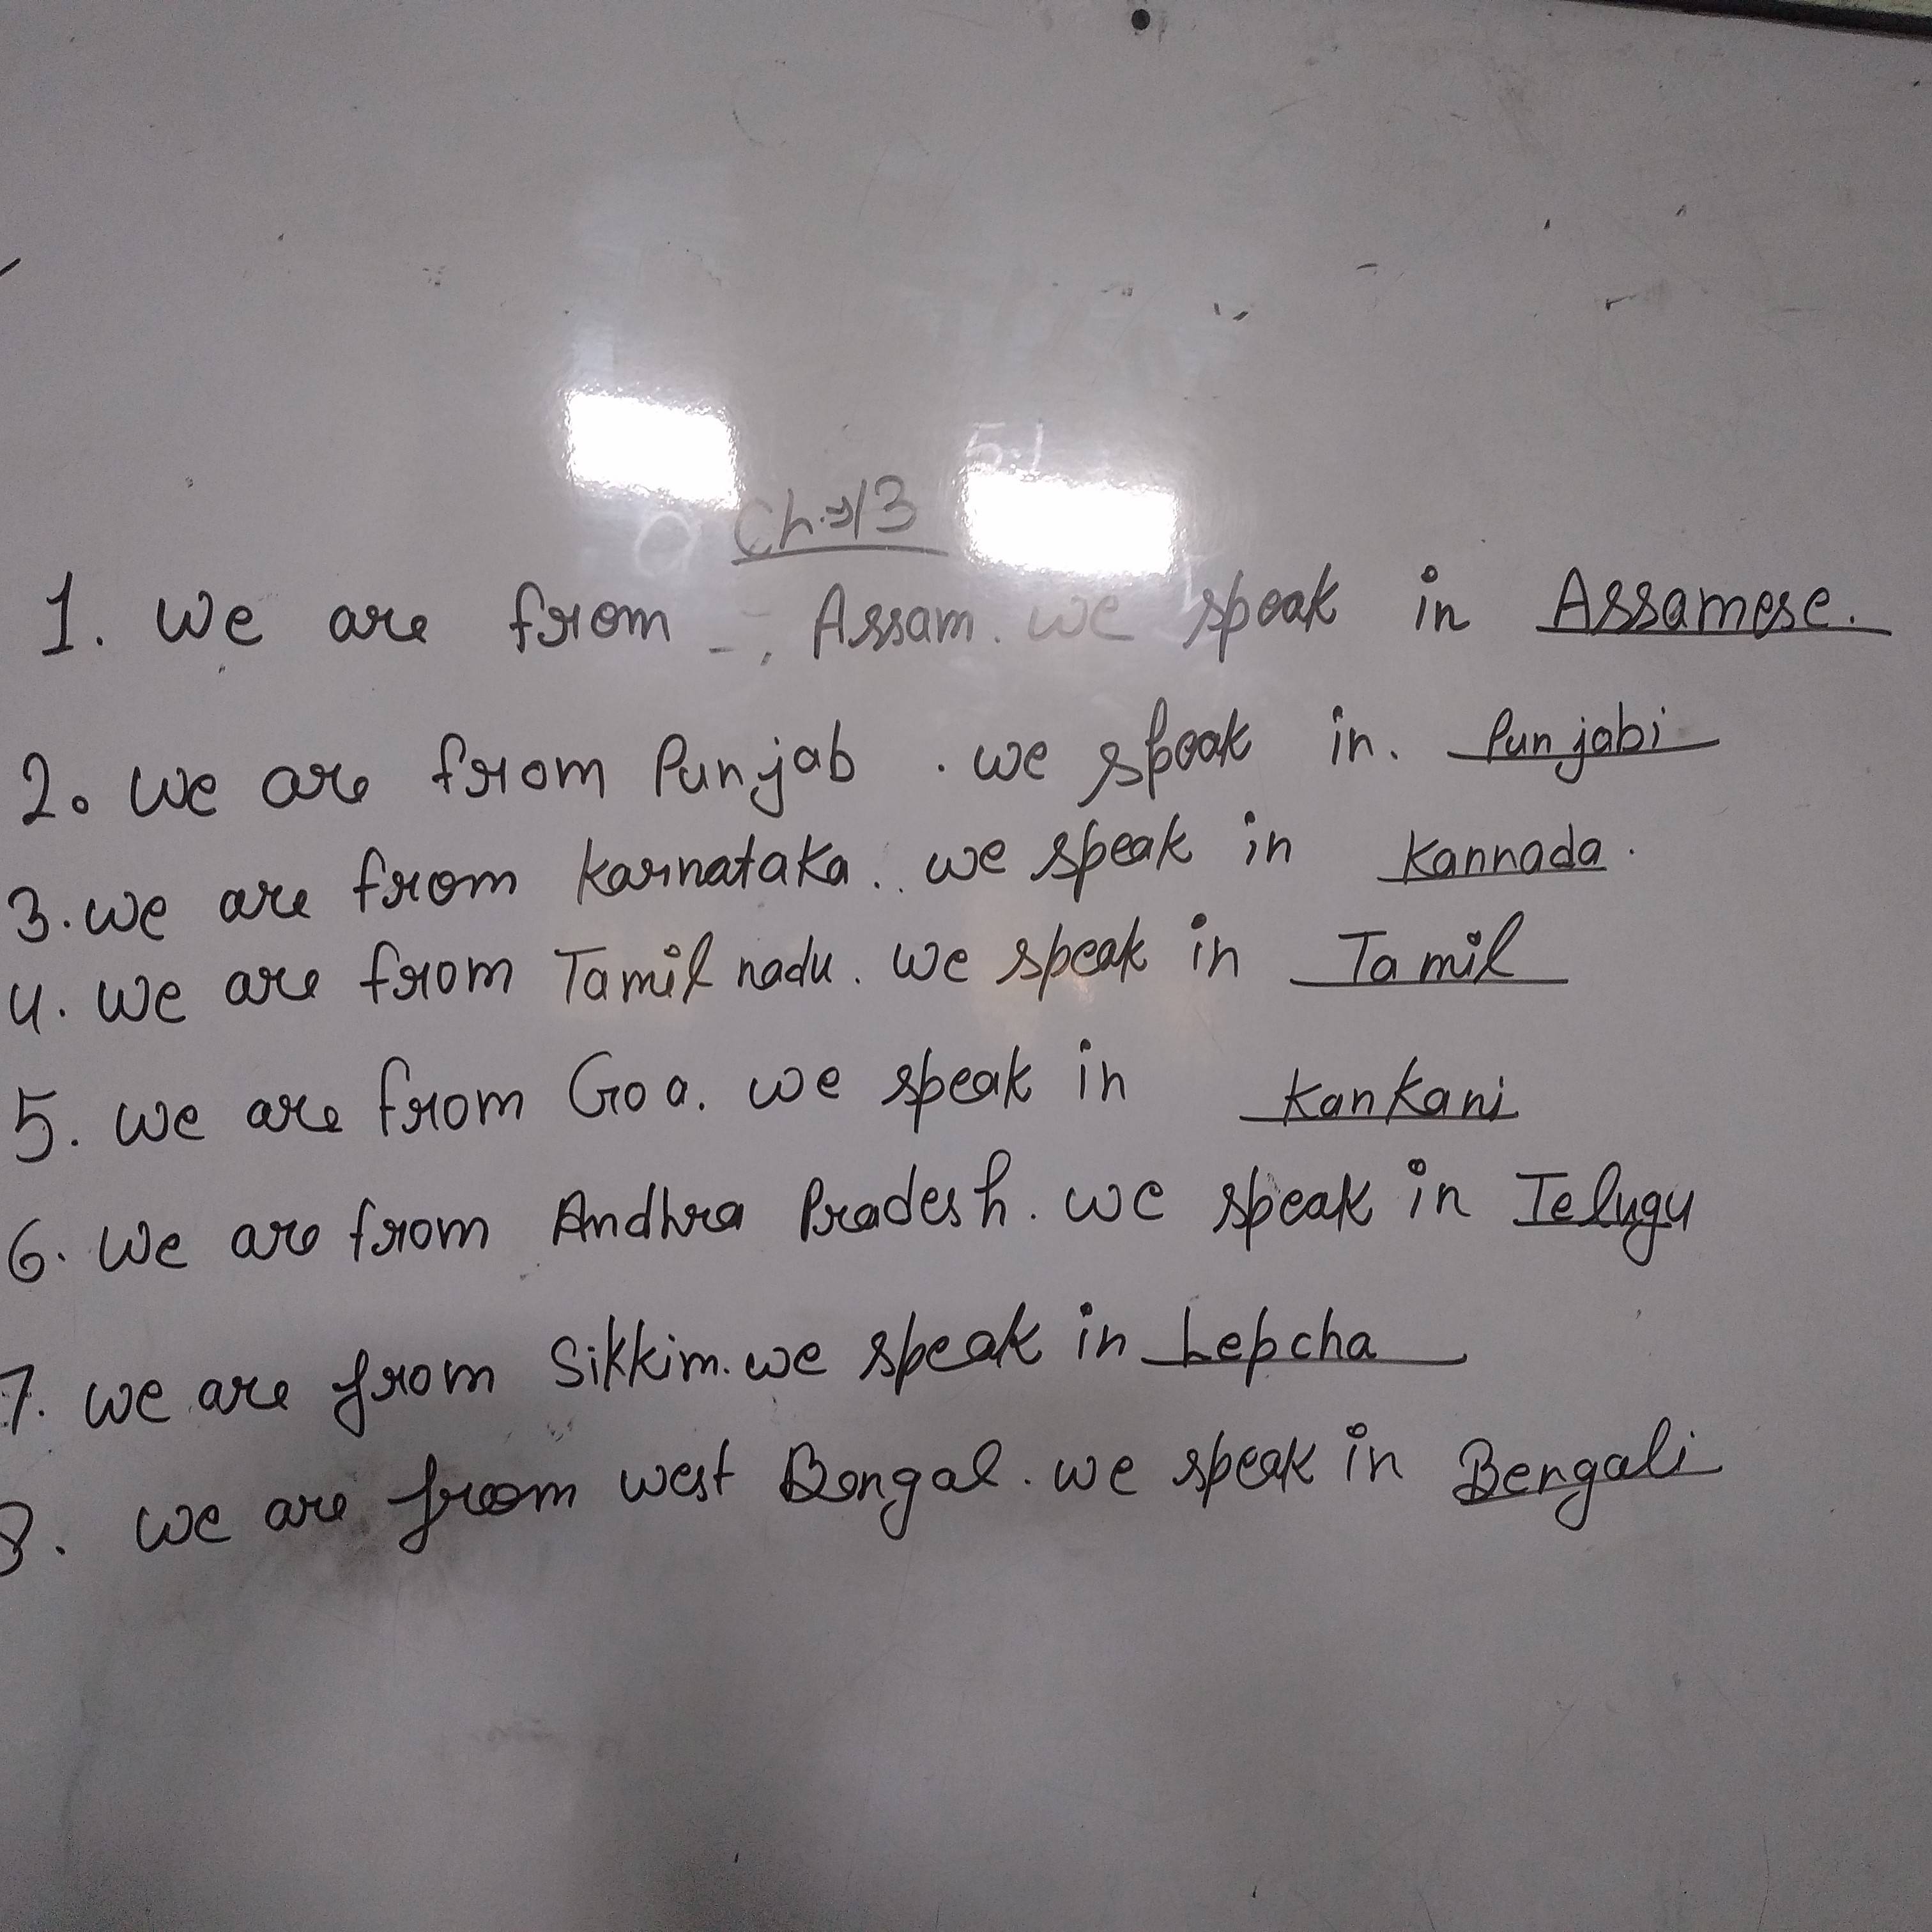 Ch.⇒13
1. We are from Assam. we speak in Assamese.
2. We are from Punjab. we speak in. Punjabi
3. we are from Karnataka.. we speak in Kannada.
4. We are from Tamil nadu. We speak in Tamil
5. we are from Goa. we speak in Kankani
6. We are from Andhra Pradesh. we speak in Telugu
7. we are from Sikkim. we speak in Lepcha
8. we are from west Bengal. we speak in Bengali